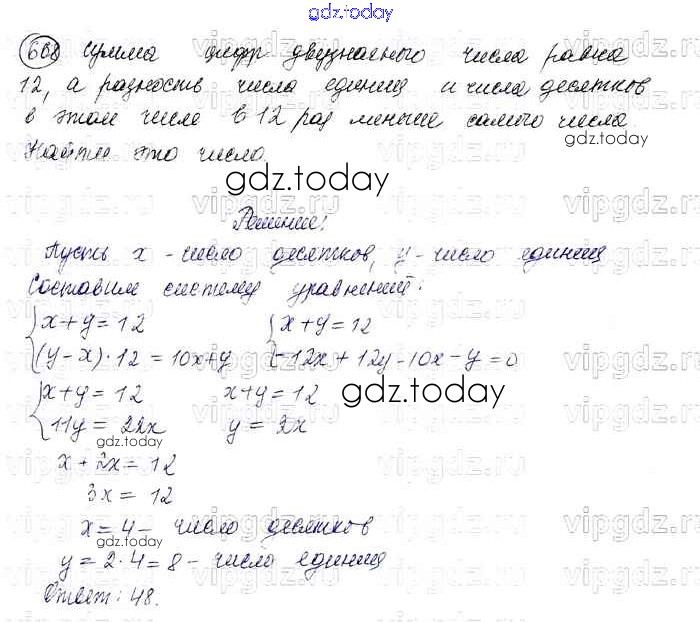 gdz.today
668 Сумма цифр двузначного числа равна
12, а разность числа единиц и числа десятков
в этом числе в 12 раз меньше самого числа.
Найти это число.
gdz.today
Решение:
Пусть x - число десятков, y - число единиц
Составим систему уравнений:
x+y=12 x+y=12
(y-x)·12=10x+y -12x+12y-10x-y=0
x+y=12 x+y=12
gdz.today
11y=22x y=2x
gdz.today
x+2x=12
3x=12
x=4- число десятков
y=2·4=8- число единиц
gdz.today
Ответ: 48.
vipgdz.ru